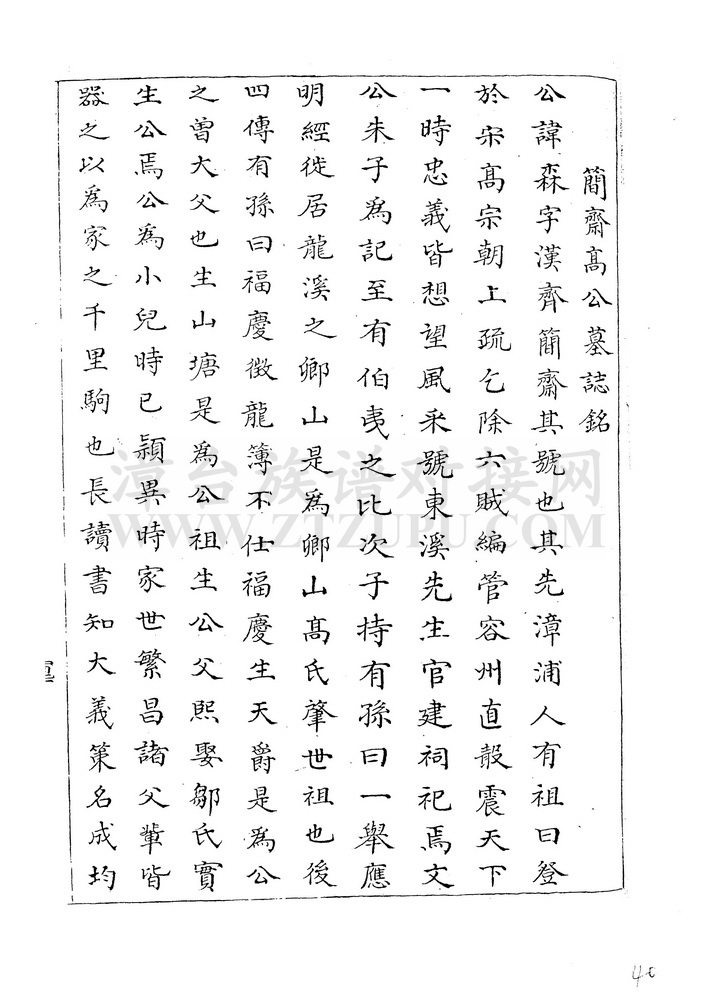 簡齋髙公墓誌銘
公諱森字漢齊簡齋其號也其先漳浦人有祖曰登
於宋髙宗朝上疏乞除六賊編管容州直聲震天下
一時忠義皆想望風采號東溪先生官建祠祀焉文
公朱子為記至有伯夷之比次子持有孫曰一舉應
明經徙居龍溪之卿山是為卿山髙氏肇世祖也後
四傳有孫曰福慶徵龍簿不仕福慶生天爵是為公
之曽大父也生山塘是為公祖生公父熙娶鄒氏實
生公焉公為小兒時已頴異時家世繁昌諸父輩皆
器之以為家之千里駒也長讀書知大義策名成均
漳台族谱对接网
WWW.ZTZUPU.COM